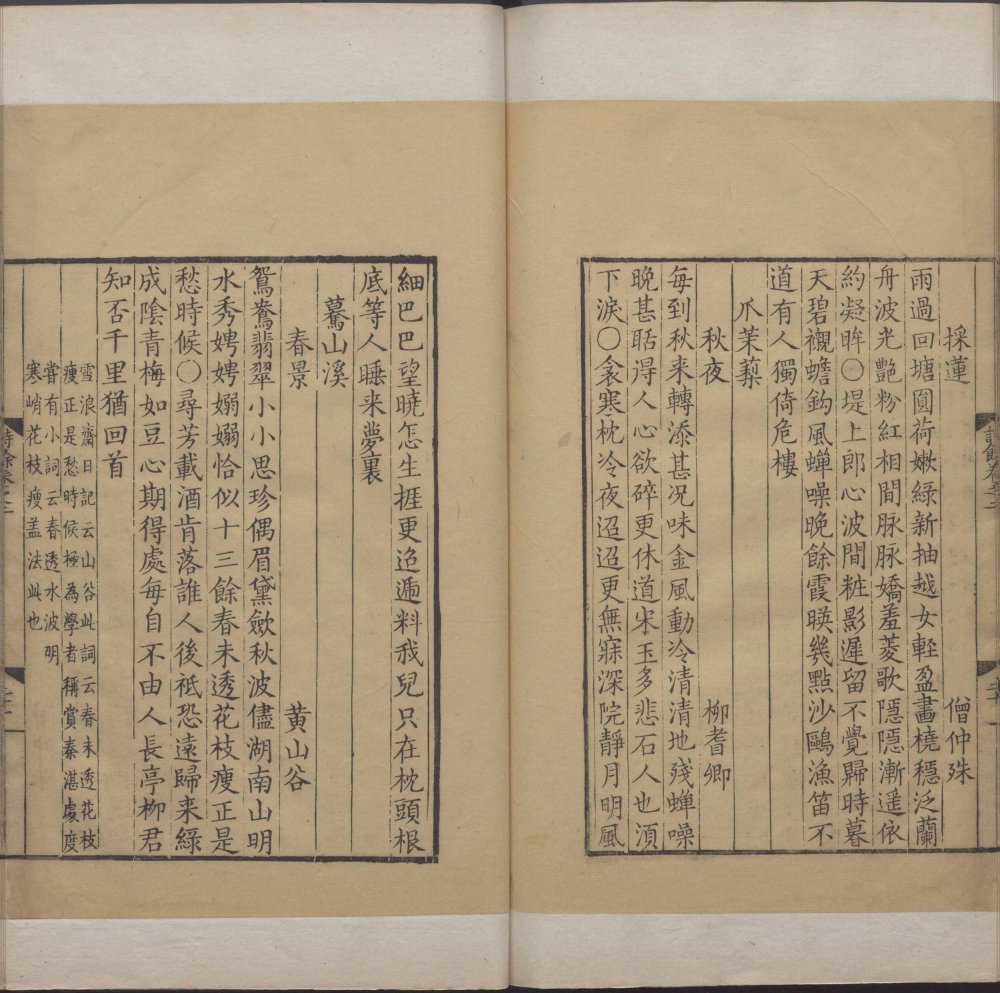 採蓮　僧仲殊
雨過回塘圓荷嫩綠新抽越女輕盈畫橈穩泛蘭
舟波光艷粉紅相間脉脉嬌羞菱歌隱隱漸遥依
約凝眸〇堤上郎心波間粧影遲留不覺歸時暮
天碧襯蟾鈎風蟬噪晚餘霞暎幾點沙鷗漁笛不
道有人獨倚危樓
爪茉蔾
秋夜　柳耆卿
每到秋來轉添甚况味金風動冷清清地殘蟬噪
晚甚聒得人心欲碎更休道宋玉多悲石人也湏
下淚〇衾寒枕冷夜迢迢更無寐深院靜月明風
細巴巴望曉怎生捱更迢遞料我兒只在枕頭根
底等人睡来夢裏
驀山溪
春景　黄山谷
鴛鴦翡翠小小思珍偶眉黛歛秋波儘湖南山明
水秀娉娉嫋嫋恰似十三餘春未透花枝瘦正是
愁時候〇尋芳載酒肯落誰人後祗恐遠歸来綠
成陰青梅如豆心期得處每自不由人長亭柳君
知否千里猶回首
雪浪齋日記云山谷此詞云春未透花枝
瘦正是愁時候極為學者稱賞秦湛處度
嘗有小詞云春透水波明
寒峭花枝瘦盖法此也